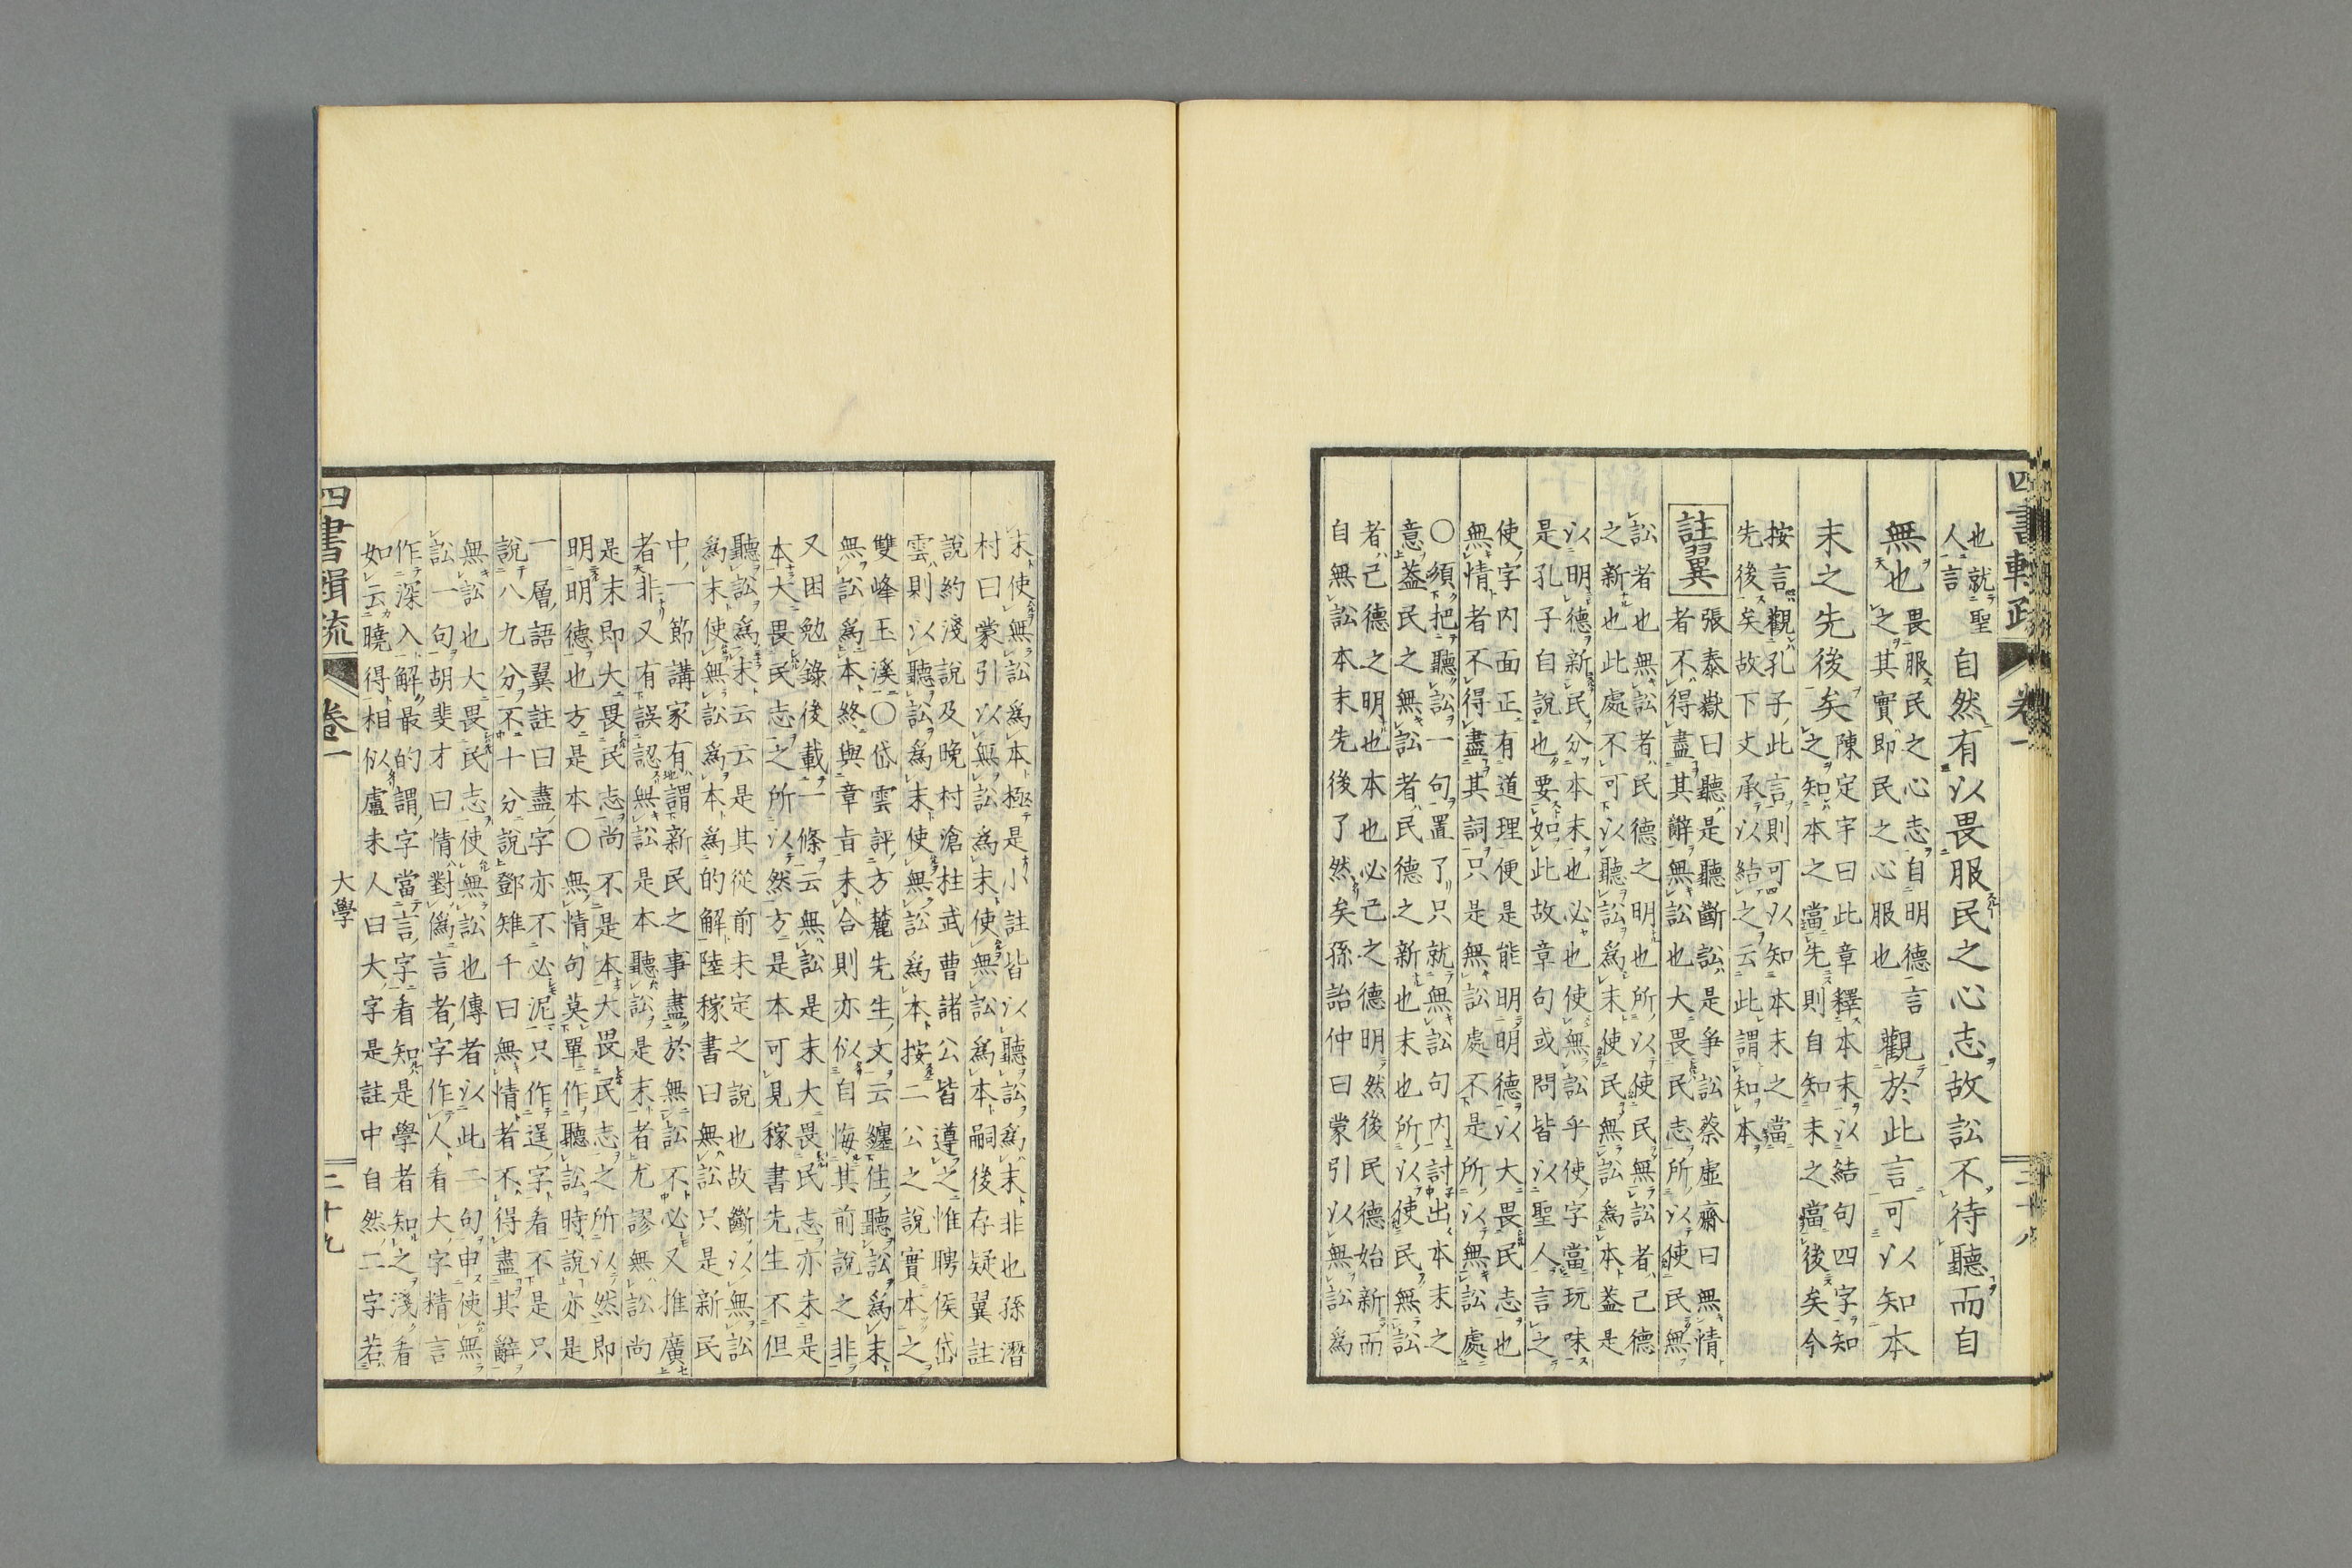 四書輯疏 卷一 三十八
也就聖
人言
自然有以畏服民之心志故訟不待聽而自
無也
畏服民之心志自明德言
之其實即民之心服也
觀於此言可以知本
末之先後矣
陳定宇曰此章釋本末以結句四字知
之知本之當先則自知末之當後矣今
按言觀孔子此言則可以知本末之當
先後矣故下文承以結之云此謂知本
註翼
張泰嶽曰聽是聽斷訟是爭訟蔡虛齋曰無情
者不得盡其辭無訟也大畏民志所以使民無
訟者也無訟者民德之明也所以使民無訟者己德
之新也此處不可以聽訟爲末使民無訟爲本蓋是
以明德新民分本末也必也使無訟乎使字當玩味
是孔子自說也要如此故章句或問皆以聖人言之
使字内面正有道理便是能明明德以大畏民志也
無情者不得盡其詞只是無訟處不是所以無訟處
○須把聽訟一句置了只就無訟句内討出本末之
意蓋民之無訟者民德之新也末也所以使民無訟
者己德之明也本也必己之德明然後民德始新而
自無訟本末先後了然矣孫詒仲曰蒙引以無訟爲
末使無訟爲本極是小註皆以聽訟爲末非也孫潛
村曰蒙引以無訟爲末使無訟爲本嗣後存疑翼註
說約淺說及晚村滄柱武曹諸公皆遵之惟聘侯岱
雲則以聽訟爲末使無訟爲本按二公之說實本之
雙峰玉溪○岱雲評方麓先生文云纏住聽訟爲末
無訟爲本終與章旨未合則亦似自悔其前說之非
又困勉錄後載一條云無訟是末大畏民志亦未是
本大畏民志之所以然方是本可見稼書先生不但
聽訟爲末云云是其從前未定之說也故斷以無訟
爲末使無訟爲本爲的解陸稼書曰無訟只是新民
中一節講家有謂新民之事盡於無訟不必又推廣
者非又有誤認無訟是本聽訟是末者尤謬無訟尚
是末即大畏民志尚不是本大畏民志之所以然即
明明德也方是本○無情句莫單作聽訟時說亦是
一層語翼註曰盡字亦不必泥只作逞字看不是只
說八九分不十分說鄧雉千曰無情者不得盡其辭
無訟也大畏民志使無訟也傳者以此二句申使無
訟一句胡斐才曰情對僞言者字作人看大字精言
作深入解最的謂字當言字看知是學者知之淺看
如云曉得相似盧未人曰大字是註中自然二字若
四書輯疏 卷一 大學 三十九